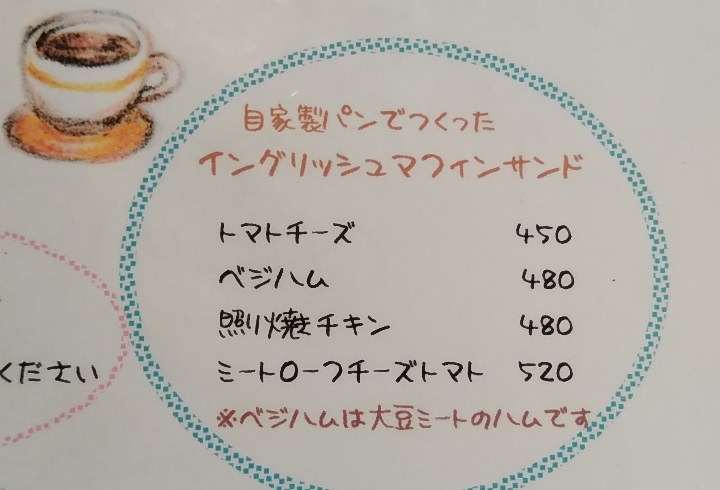 自家製パンでつくった
イングリッシュマフィンサンド
トマトチーズ 450
ベジハム 480
照り焼きチキン 480
ミートローフチーズトマト 520
※ベジハムは大豆ミートのハムです
ください